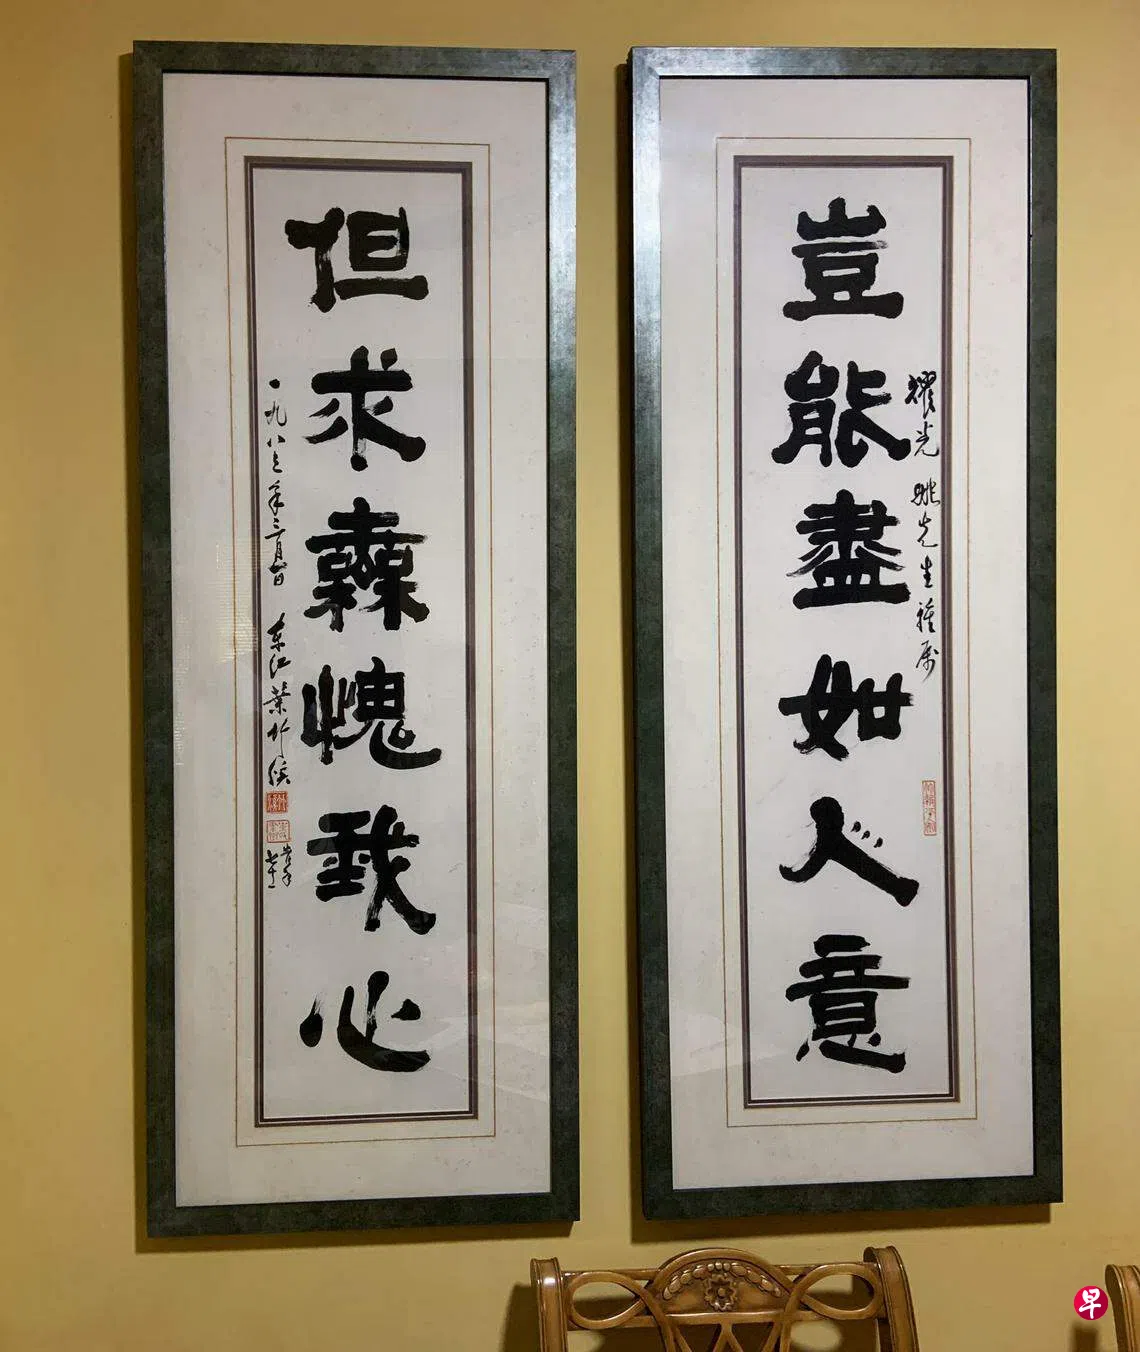 豈能盡如人意
耀光 姚先生雅属
但求無愧我心
一九八三年三月 东江葉竹
早